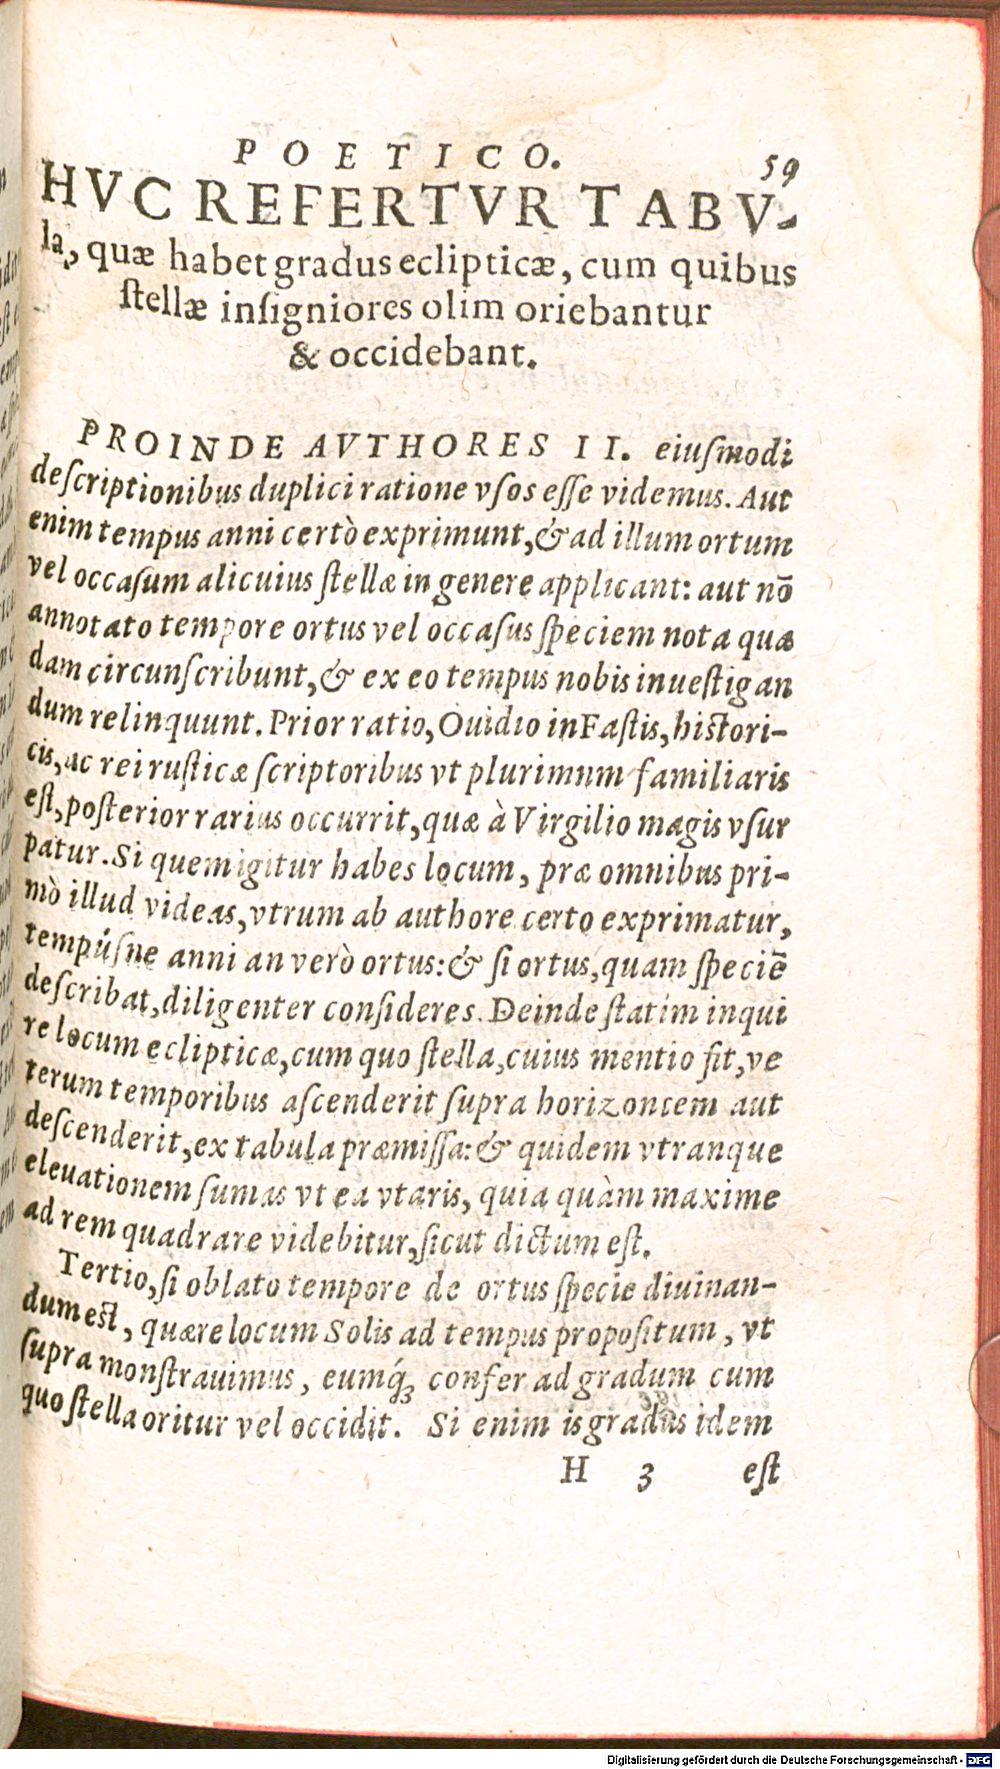 POETICO. 59
HVC REFERTVR TABV-
la, quæ habet gradus eclipticæ, cum quibus
ſtellæ inſigniores olim oriebantur
& occidebant.
PROINDE AVTHORES II. eiuſmodi
deſcriptionibus duplici ratione vſos eſſe videmus. Aut
enim tempus anni certò exprimunt, & ad illum ortum
vel occaſum alicuius ſtellæ in genere applicant: aut nō
annotato tempore ortus vel occaſus ſpeciem nota qua
dam circunſcribunt, & ex eo tempus nobis inueſtigan
dum relinquunt. Prior ratio, Ouidio in Faſtis, hiſtori-
cis, ac rei ruſticæ ſcriptoribus vt plurimum familiaris
eſt, poſterior rarius occurrit, quæ à Virgilio magis vſur
patur. Si quem igitur habes locum, præ omnibus pri-
mò illud videas, vtrum ab authore certo exprimatur,
tempúſne anni an verò ortus: & ſi ortus, quam ſpeciē
deſcribat, diligenter conſideres. Deinde ſtatim inqui
re locum eclipticæ, cum quo ſtella, cuius mentio fit, ve
terum temporibus aſcenderit ſupra horizontem aut
deſcenderit, ex tabula præmiſſa: & quidem vtranque
eleuationem ſumas vt ea vtaris, quia quàm maxime
ad rem quadrare videbitur, ſicut dictum eſt.
Tertio, ſi oblato tempore de ortus ſpecie diuinan-
dum eſt, quære locum Solis ad tempus propoſitum, vt
ſupra monſtrauimus, eumq́ꝫ confer ad gradum cum
quo ſtella oritur vel occidit. Si enim is gradus idem
H 3 eſt
Digitalisierung gefördert durch die Deutsche Forschungsgemeinschaft - DFG